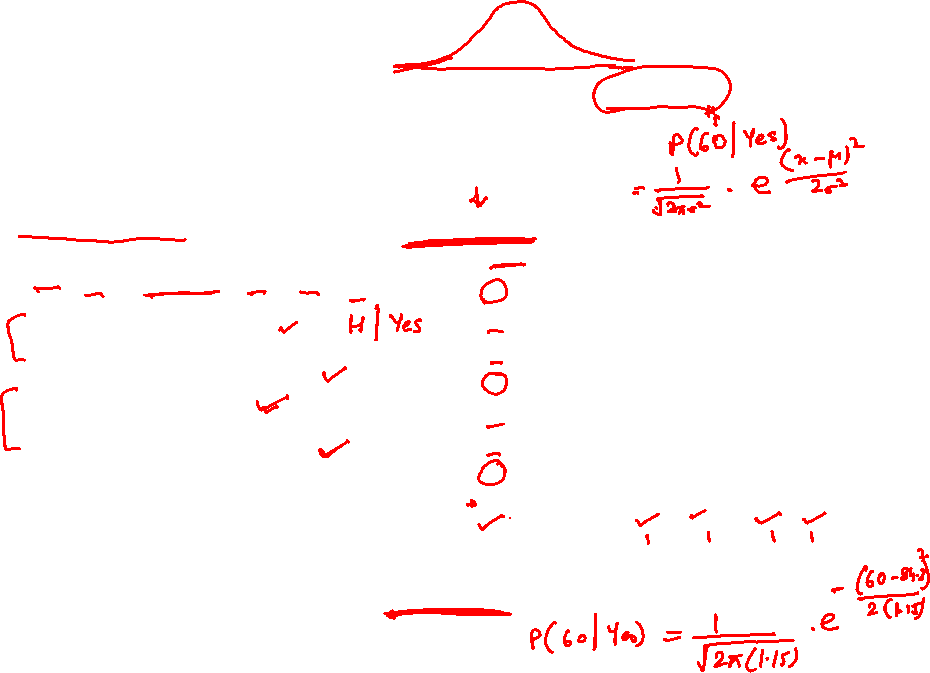 P(60|Yes)
= 1/√(2πσ²) . e (x-μ)²/2σ²
H|Yes
P(60|Yes) = 1/√(2π(1.15)) . e -(60-84.3)²/2(1.15)